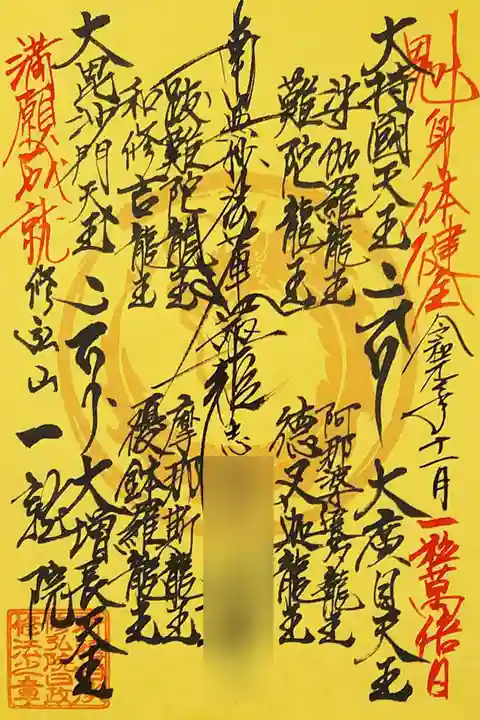 魁 身体健全
令和元年十一月 一粒萬倍日
大持國天王
大廣目天王
沙伽羅龍王
難陀龍王
阿那婆達龍王
徳叉迦龍王
南無妙法蓮華経
跋難陀龍王
和修吉龍王
摩那斯龍王
優鉢羅龍王
大毘沙門天王
大増長天王
満願成就
修法山 一龍院